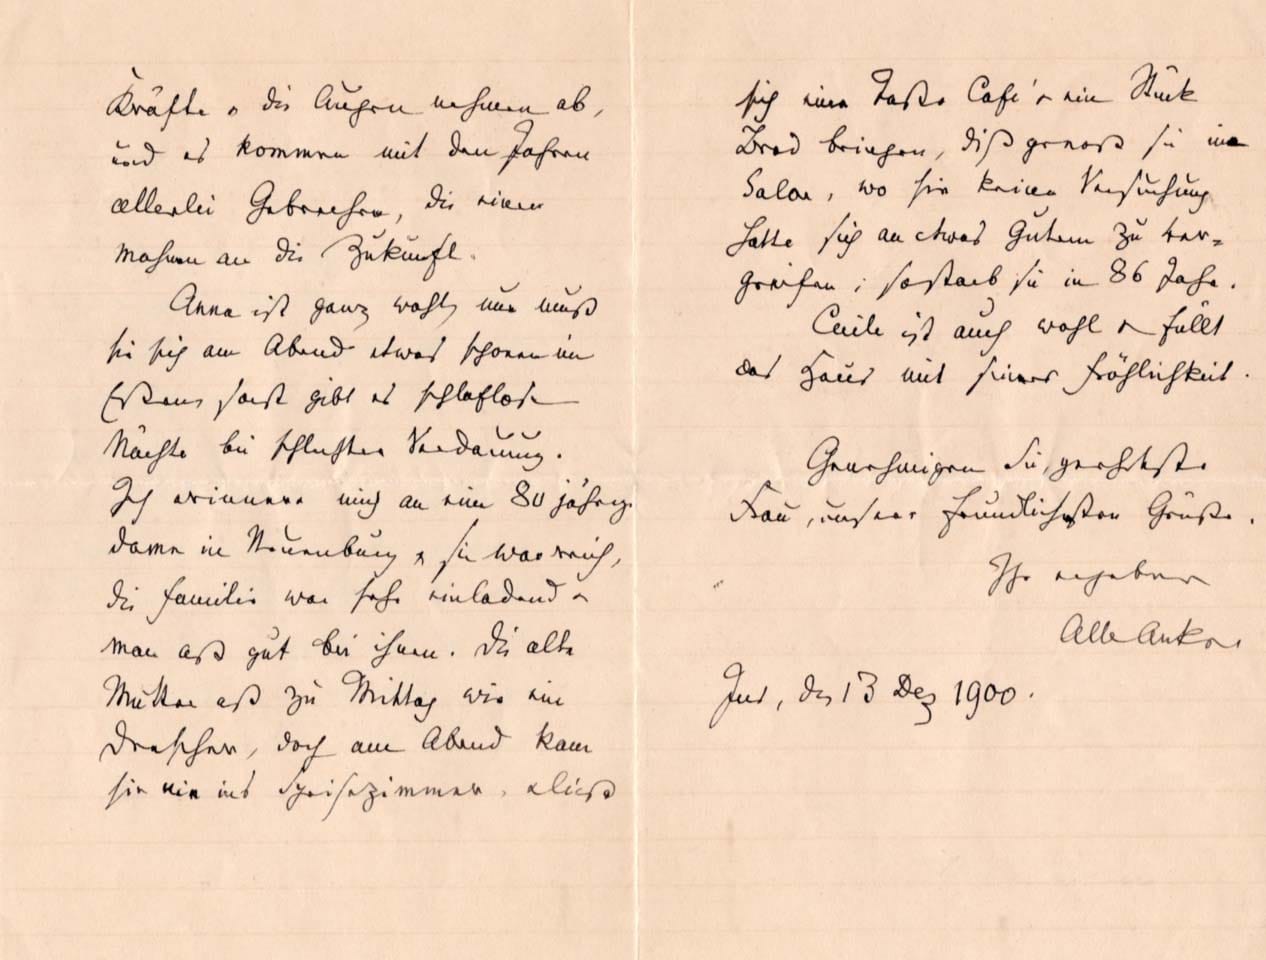 Kräfte & die Augen nehmen ab,
und es kommen mit den Jahren
allerlei Gebrechen, die einen
mahnen an die Zukunft.
Anna ist ganz wohl, nur muß
sie sich am Abend etwas schonen im
Essen, sonst gibt es schlaflose
Nächte bei schlechter Verdauung.
Ich erinnere mich an eine 80 jährige
Dame in Neuenburg, sie war reich,
die Familie war sehr einladend &
man aß gut bei ihnen. Die alte
Mutter aß zu Mittag wie ein
Drescher, doch am Abend kam
sie nie ins Speisezimmer, & ließ
sich eine Tasse Café & ein Stück
Brod bringen, diß genoß sie im
Salon, wo sie keine Versuchung
hatte sich an etwas Gutem zu ver=
greifen; so starb sie in 86 Jahr.
Cecile ist auch wohl & füllt
das Haus mit seiner Fröhlichkeit.
Genehmigen Sie, geehrteste
Frau, unsere freundlichsten Grüße.
Ihr ergebener
Alb Anker
Ins, den 13 Dez 1900.